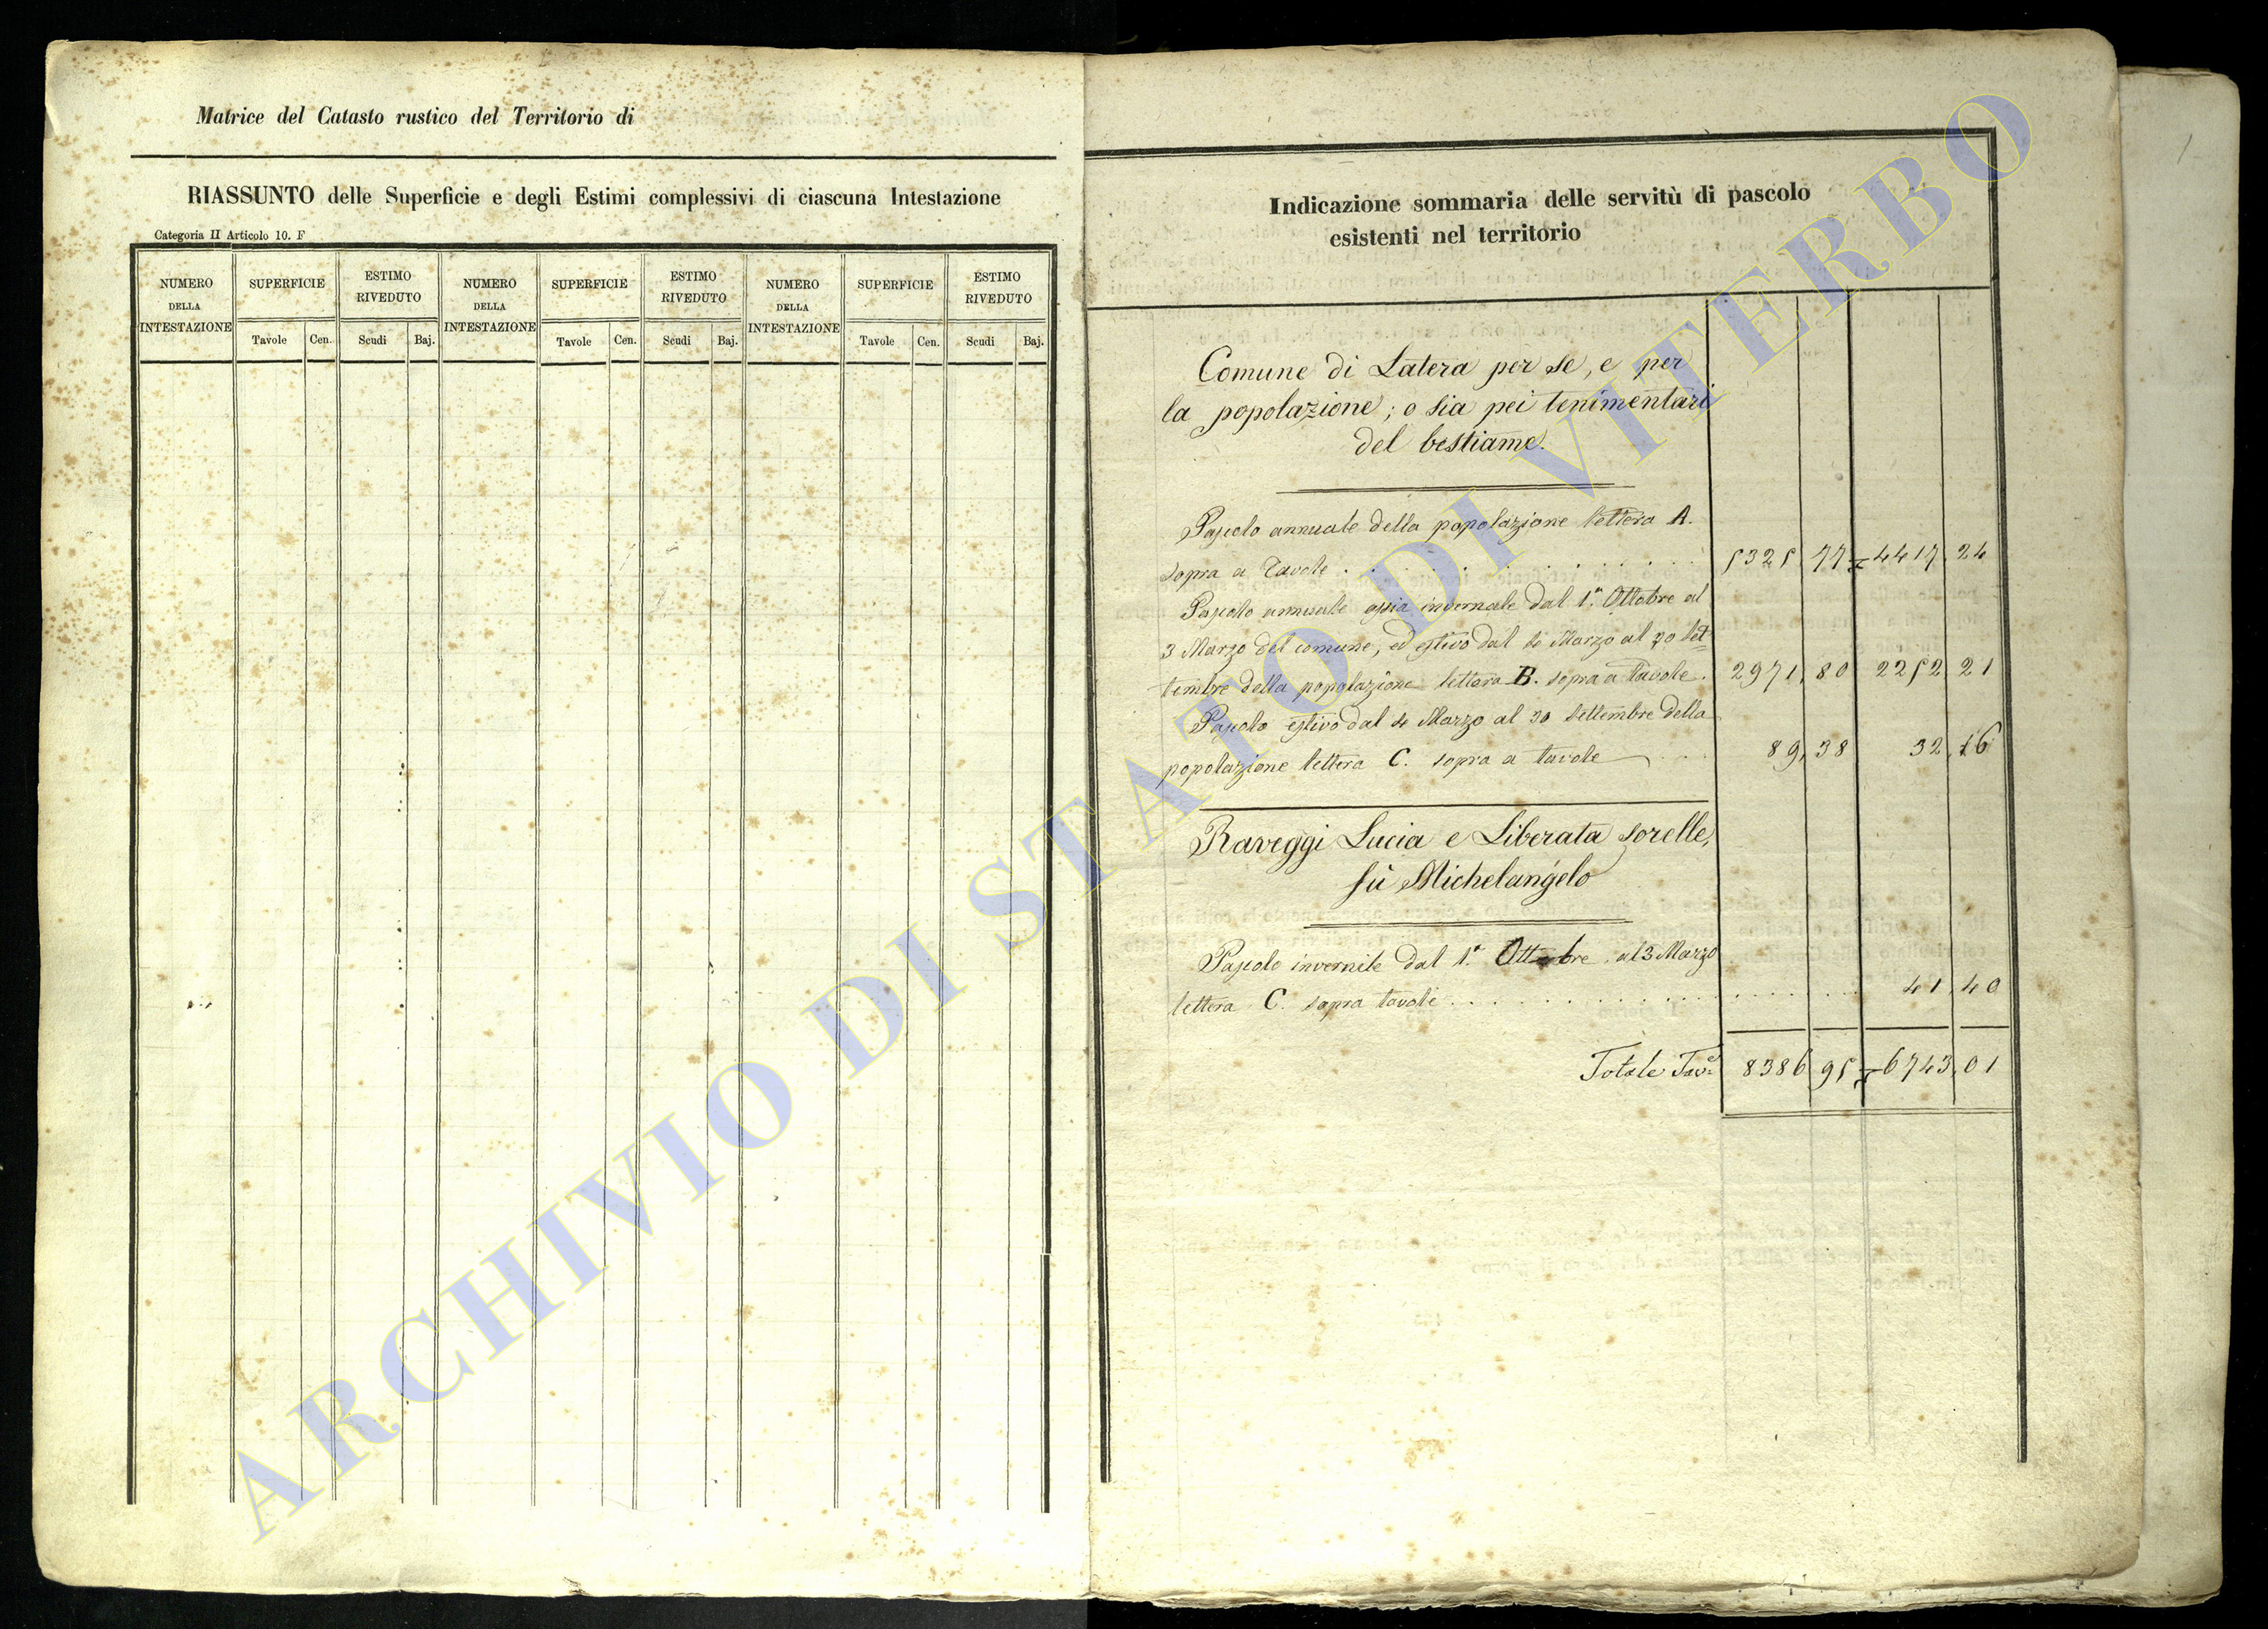 Matrice del Catasto rustico del Territorio di
RIASSUNTO delle Superficie e degli Estimi complessivi di ciascuna Intestazione
Categoria II Articolo 10. F
NUMERO DELLA INTESTAZIONE SUPERFICIE ESTIMO RIVEDUTO NUMERO DELLA INTESTAZIONE SUPERFICIE ESTIMO RIVEDUTO NUMERO DELLA INTESTAZIONE SUPERFICIE ESTIMO RIVEDUTO
Tavole Cen. Scudi Baj. Tavole Cen. Scudi Baj. Tavole Cen. Scudi Baj.
Indicazione sommaria delle servitù di pascolo
esistenti nel territorio
Comune di Latera per se, e per
la popolazione; o sia pei tenimentari
del bestiame.
Pascolo annuale della popolazione lettera A.
sopra a Tavole . . . . . . . . . . . 5325 77 4417 24
Pascolo annuale ossia invernale dal 1.º Ottobre al
3 Marzo del comune, ed estivo dal 4 Marzo al 30 Set=
tembre della popolazione lettera B. sopra a tavole. 2971, 80 2252, 21
Pascolo estivo dal 4 Marzo al 30 Settembre della
popolazione lettera C. sopra a tavole 89, 38 32, 16
Raveggi Lucia e Liberata sorelle,
fù Michelangelo
Pascolo invernile dal 1.º Ottobre al 3 Marzo
lettera C. sopra tavole . . . . . . . . . . . 41, 40
Totale Tav.e 8386 95 6743, 01
1
ARCHIVIO DI STATO DI VITERBO